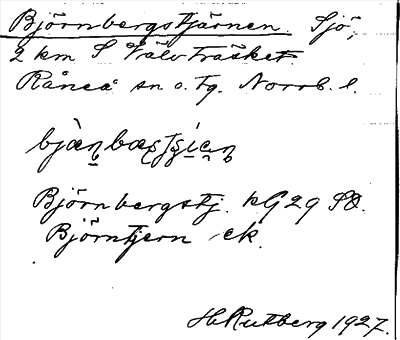 Björnbergstjärnen. Sjö,
2 km S Trälvträsket
Råneå sn o. tg. Norrb. l.
Björnbergstj. KG 29 SO.
Björntjern ek.
H. Rutberg 1927.